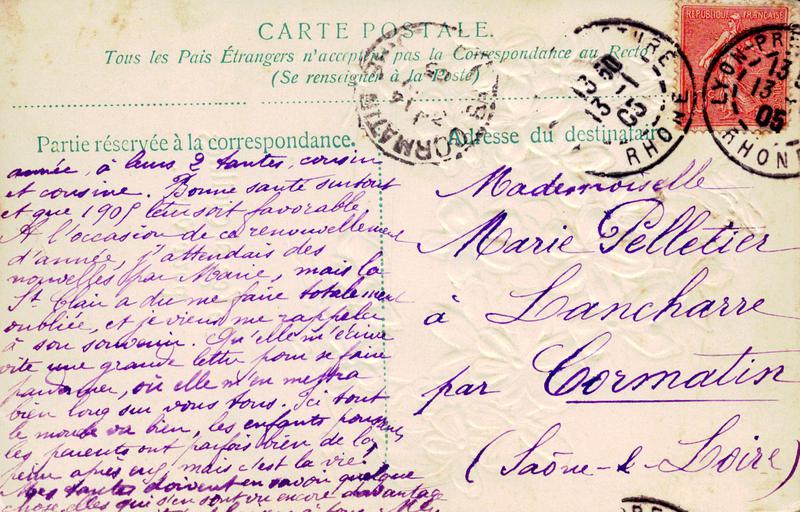 CARTE POSTALE.
Tous les Pais Étrangers n'acceptent pas la Correspondance au Recto
(Se renseigner à la Poste)
RÉPUBLIQUE FRANÇAISE
LYON-PR
13
13
05
RHONE
CTURE
13
05
RHONE
CORMATIN
Partie réservée à la correspondance.
année, à leurs 2 tantes, cousin
et cousine. Bonne santé surtout
et que 1905 leur soit favorable
A l'occasion de ce renouvellement
d'année, j'attendais des
nouvelles par Marie, mais la
St Clair a du me faire totalement
oublier, et je viens me rappeler
à son souvenir. Qu'elle m'écrive
vite une grande lettre pour se faire
pardonner, où elle m'en mettra
bien long sur vous tous. Ici tout
le monde va bien, les enfants poussent
les parents ont parfois bien de la
peine après eux, mais c'est la vie!
Mes tantes doivent en savoir quelque
chose, elles qui s'en sont vu encore davantage
Adresse du destinataire
Mademoiselle
Marie Pelletier
à Lancharre
par Cormatin
(Saône-&-Loire)